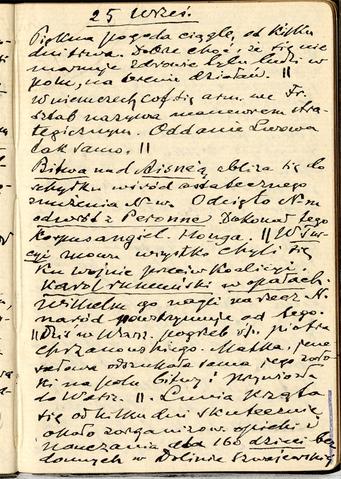 25 Wrześ.
Piękna pogoda ciągle, od kilku
dni trwa. Dobre choć, że się nie
marnuje zdrowie tylu ludzi w
polu, na terenie działań. ||
W niemczech cof. się arm. we Fr.
sztab nazywa manewrem stra-
tegicznym. Oddanie Lwowa
tak samo. ||
Bitwa nad Aisne'ą zbliża się do
schyłku wśród ostatecznego
znużenia N-ów. Odcięto N-m
odwrót z Peronne. Dokonał tego
Korpus angiel. || W Tur-
cyi znowu wszystko chyli się
ku wojnie przeciw Koalicyi.
Karol rumuński w opałach.
Wilhelm go nagli na rzecz N.
naród powstrzymuje od tego.
|| Dziś w Warsz. pogrzeb ś.p. Piotra
Chrzanowskiego. Matka, jene-
rałowa odszukała sama jego zwło-
ki na polu bitwy i przywiozła
do Warsz. ||
się od kilku dni skutecznie
około zorganizow. opieki i
nauczania dla 160 dzieci bez-
domnych w Dolinie Szwajcarskiej